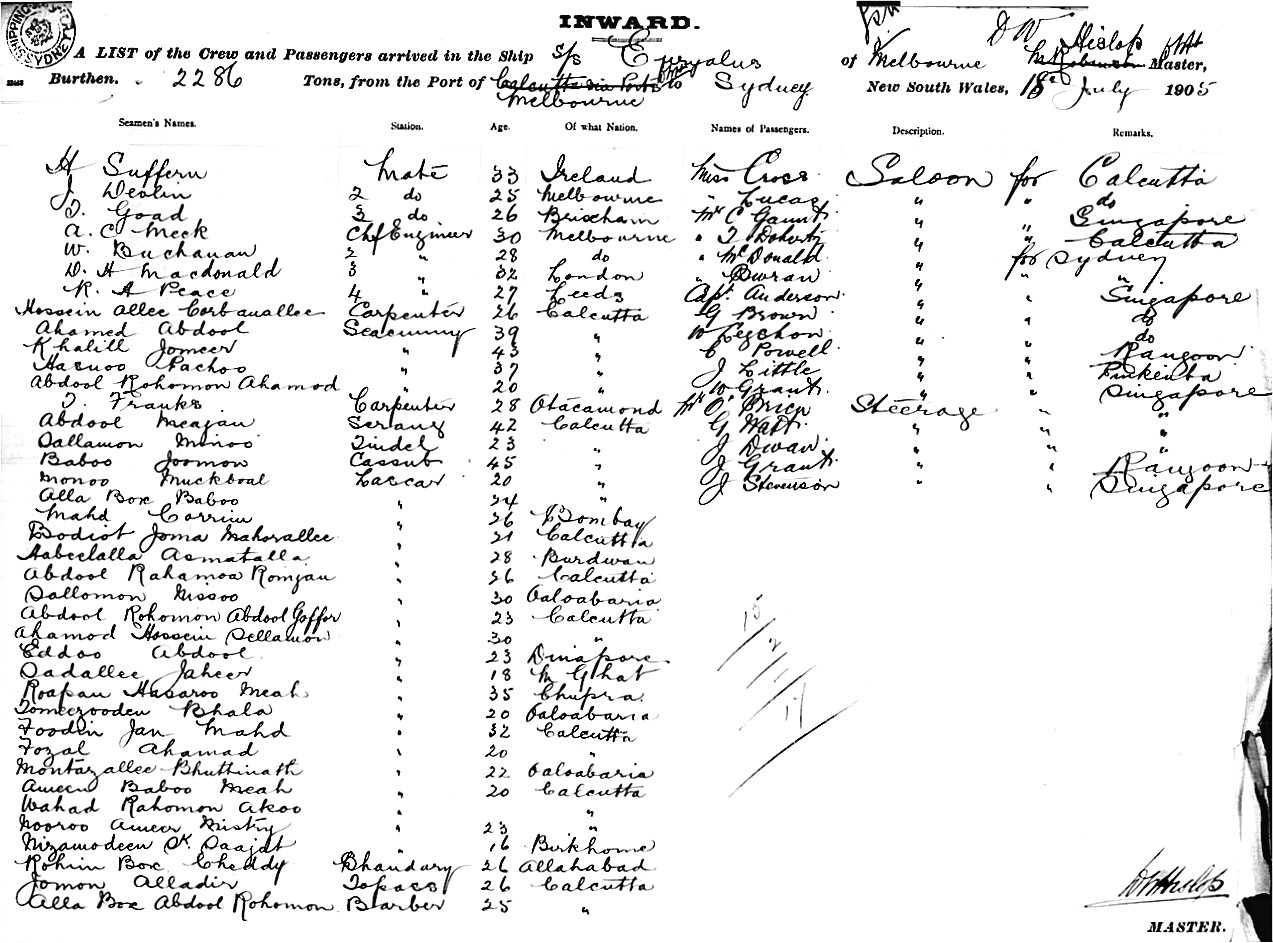 INWARD.
D W Hislop
A LIST of the Crew and Passengers arrived in the Ship S/s Euryalus of Melbourne McRobinson Master,
Burthen. 2286 Tons, from the Port of Calcutta via Ports to Sydney New South Wales, 18th July 1905
Melbourne
Seamen's Names. Station. Age. Of what Nation. Names of Passengers. Description. Remarks.
H Suffern Mate 33 Ireland Miss Cross Saloon for Calcutta
J. Devlin 2 do 25 Melbourne " Lucas " " do
T. Goad 3 do 26 Brixham Mr C Gaunt " " Singapore
A. C Meek Chf Engineer 30 Melbourne " T Doherty " " Calcutta
W. Buchanan 2 " 28 do " McDonald " for Sydney
D. H Macdonald 3 " 32 London " Bwran " " "
R. A Peace 4 " 27 Leeds Capt. Anderson " " Singapore
Hossein Allee Corbanallee Carpenter 26 Calcutta G Brown " " do
Ahamed Abdool Seacunny 39 " W " " do
Khalill Jomeer " 43 " C Powell " " Rangoon
Hasnoo Pachoo " 37 " J Little " " Pinkenba
Abdool Rohomon Ahamod " 20 " W Grant " " Singapore
T. Franks Carpenter 28 Otacamond Mr O'Brien Steerage " "
Abdool Meajan Serang 42 Calcutta G Watt " " "
Sallamon Minoo Tindel 23 " J Dwan " " "
Baboo Joomon Cassub 45 " J Grant " " Rangoon
Monoo Muckboal Lascar 20 " J Stevenson " " Singapore
Alla Box Baboo " 24 "
Mahd Corrim " 26 Bombay
Bodiot Joma Mahorallee " 21 Calcutta
Habeelalla Asmatalla " 28 Burdwan
Abdool Rahamoa Romjan " 26 Calcutta
Sallomon Nissoo " 30 Oaloabaria
Abdool Rohomon Abdool Goffor " 23 Calcutta
Ahamod Hossein Sellamon " 30 "
Eddoo Abdool " 23 Dinapore
Sadallee Jaheer " 18 M Ghat
Roapan Hasaroo Meah " 35 Chupra
Tomeezooden Bhala " 20 Oaloabaria
Foodin Jan Mahd " 32 Calcutta
Fozal Ahamad " 20 "
Montazallee Bhuttinath " 22 Oaloabaria
Ameen Baboo Meah " 20 Calcutta
Wahad Rahomon Akoo " "
Nooroo Ameer Mistry " 23 "
Nizamodeen Sk. Saajat " 16 Birkhome
Rohim Box Cheddy Bhandary 26 Allahabad
Jomon Alladir Topass 26 Calcutta
Alla Box Abdool Rohomon Barber 25 "
15
2
17
DWHislop
MASTER.